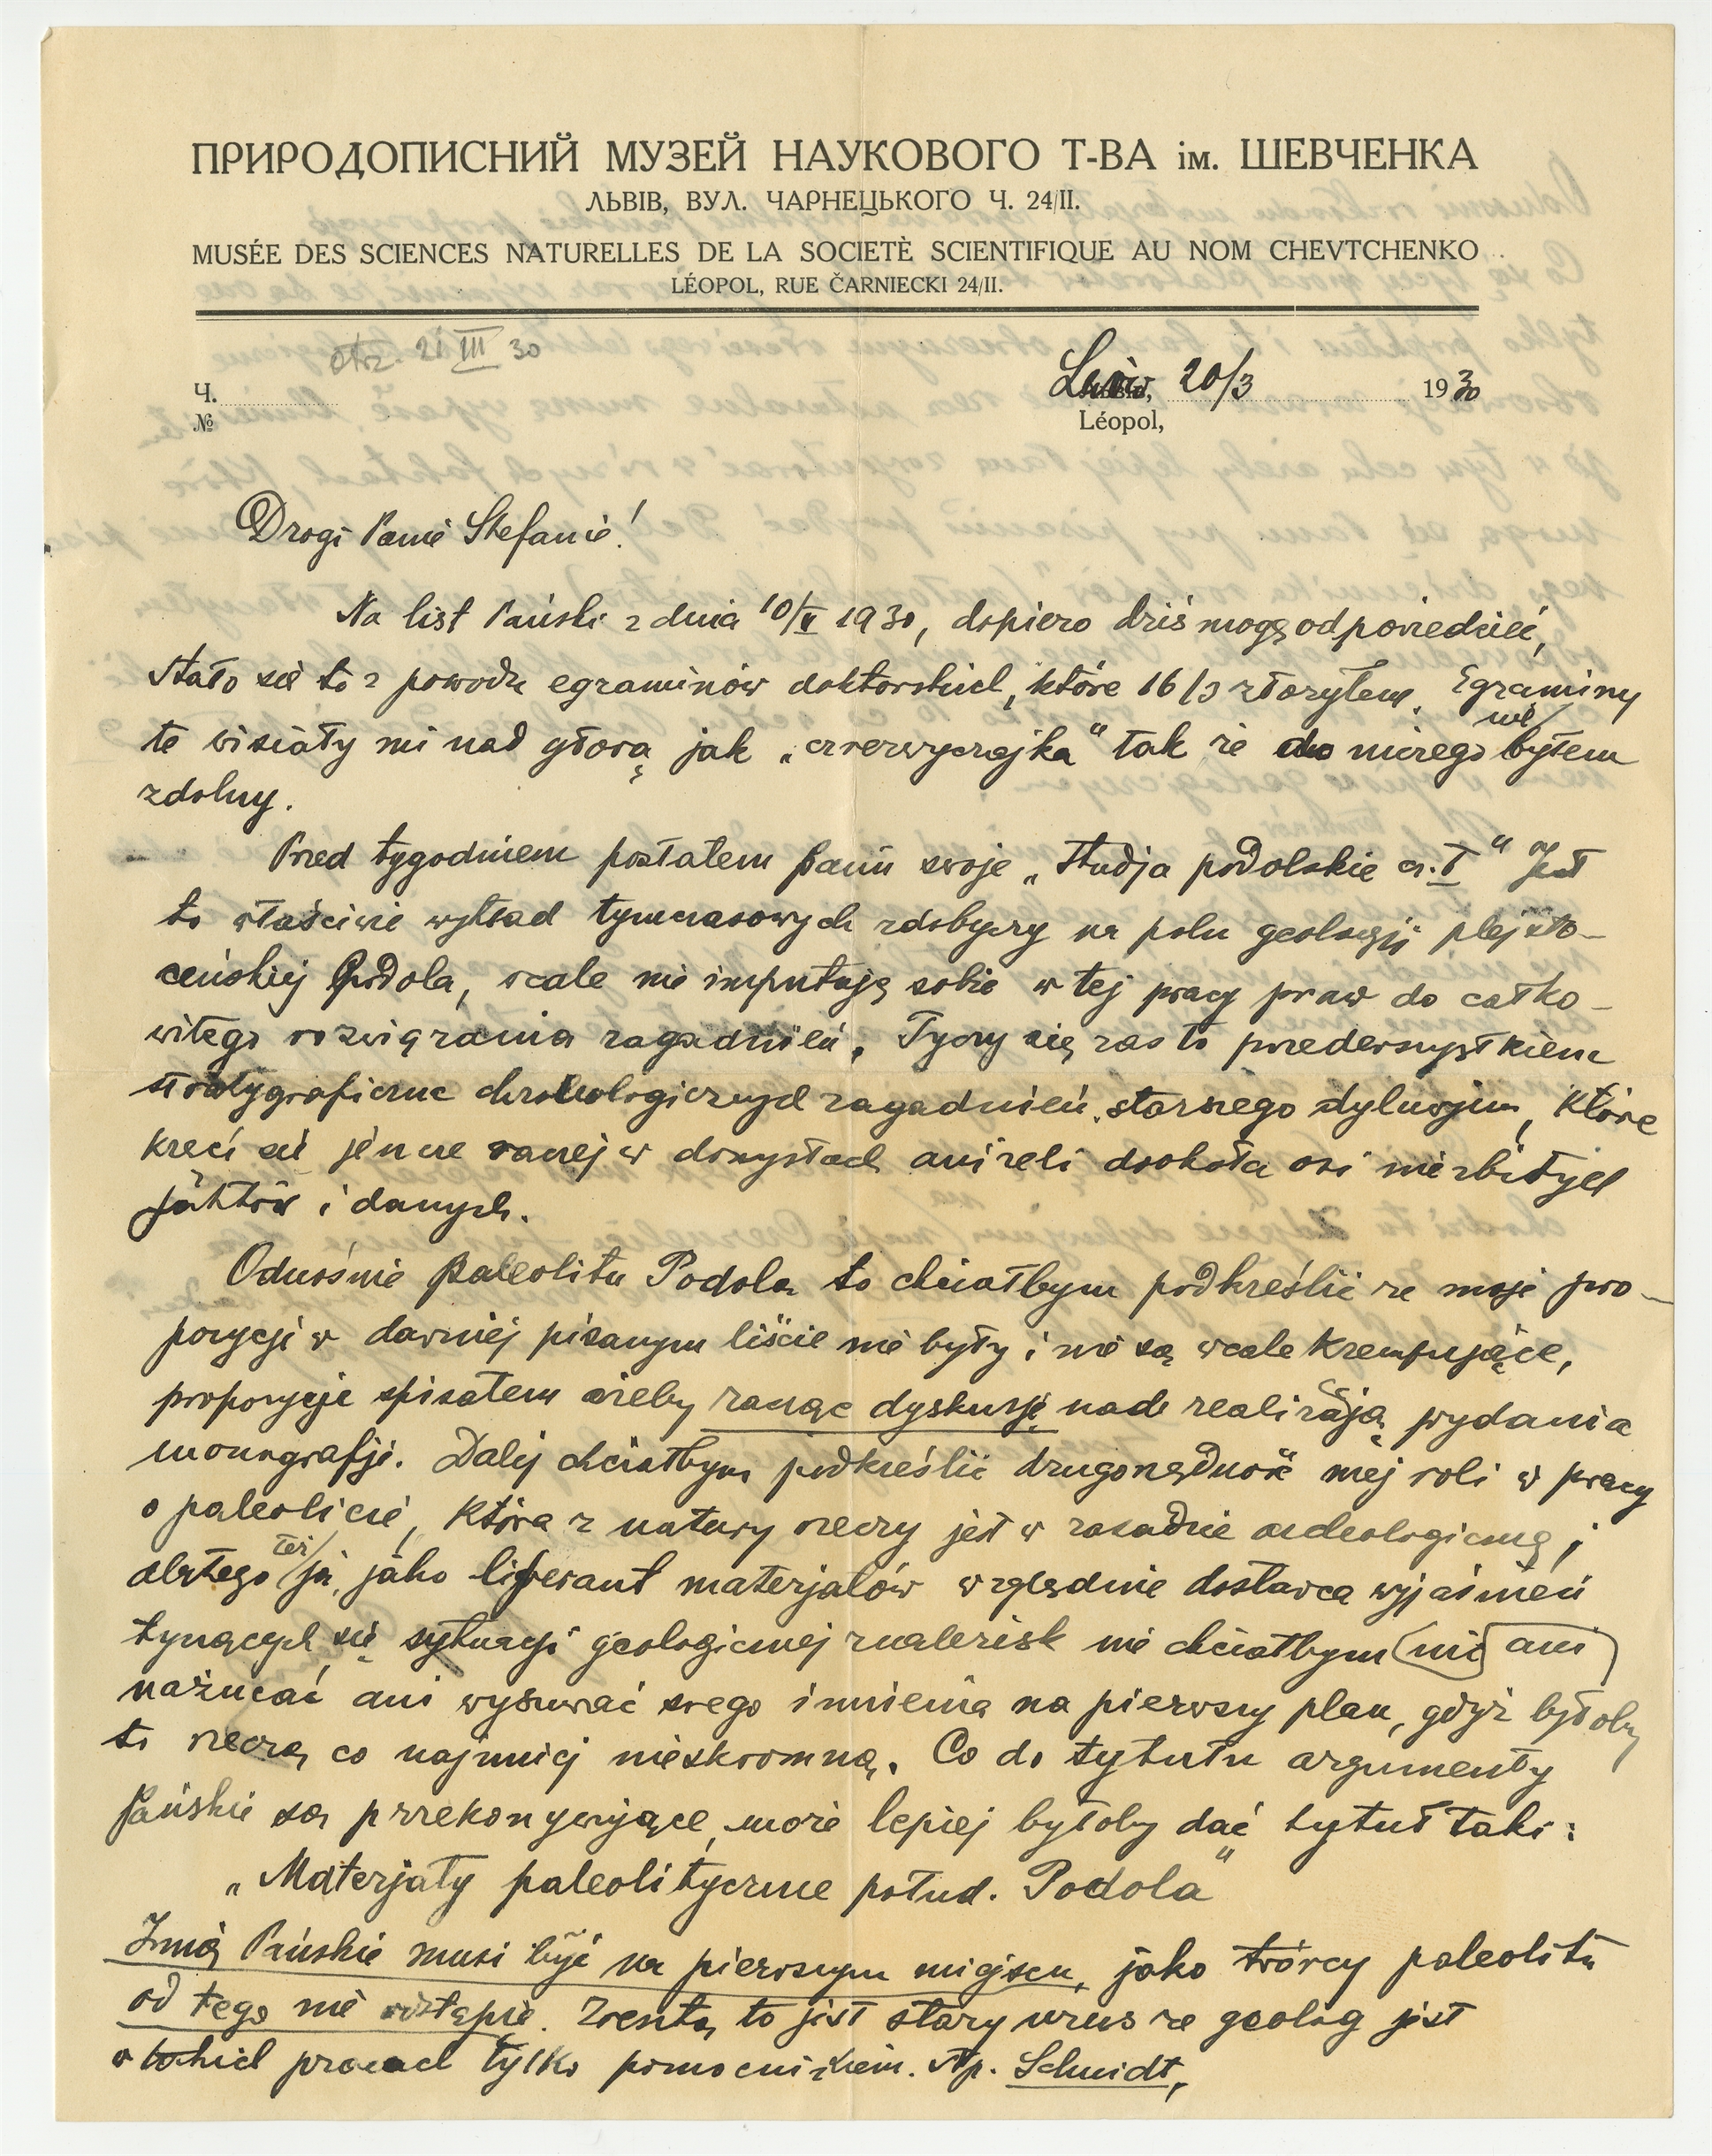 ПРИРОДОПИСНИЙ МУЗЕЙ НАУКОВОГО Т-ВА ім. ШЕВЧЕНКА
ЛЬВІВ, ВУЛ. ЧАРНЕЦЬКОГО Ч. 24/II.
MUSÉE DES SCIENCES NATURELLES DE LA SOCIETÈ SCIENTIFIQUE AU NOM CHEVTCHENKO
LÉOPOL, RUE ČARNIECKI 24/II.
otrz. 21 III 30
Ч.
№
Lwów, 20/3 1930
Léopol,
Drogi Panie Stefanie!
Na list Pański z dnia 10/II 1930, dopiero dziś mogę odpowiedzieć,
stało się to z powodu egzaminów doktorskich, które 16/3 złożyłem. Egzaminy
te wisiały mi nad głową jak „czerwyczajka" tak że do niczego nie byłem
zdolny.
Przed tygodniem posłałem Panu swoje „Studja podolskie cz. I" Jest
to właściwie wykład tymczasowych zdobyczy na polu geologji plejsto-
ceńskiej Podola, wcale nie imputuję sobie w tej pracy praw do całko-
witego rozwiązania zagadnień. Tyczy się zaś to przedewszystkiem
stratygraficzne chronologicznych zagadnień starszego dyluwjum, które
kręci się jeszcze raczej w domysłach aniżeli dookoła osi niezbitych
faktów i danych.
Odnośnie paleolitu Podola to chciałbym podkreślić że moje pro-
pozycji w dawniej pisanym liście nie były i nie są wcale krempujące,
propozycje spisałem ażeby zacząć dyskusję nad realizacją wydania
monografji. Dalej chciałbym podkreślić drugorzędność mej roli w pracy
o paleolicie, która z natury rzeczy jest w zasadzie archeologiczną;
dlatego też ja, jako liferant materjałów względnie dostawca wyjaśnień
tyczących się sytuacji geologicznej znalezisk nie chciałbym nie ani
narzucać ani wysuwać swego imienia na pierwszy plan, gdyż byłoby
to rzeczą co najmniej nieskromną. Co do tytułu argumenty
Pańskie są przekonywujące, może lepiej byłoby dać tytuł taki:
„Materjały paleolityczne połud. Podola"
Imię Pańskie musi być na pierwszym miejscu, jako twórcy paleolitu
od tego nie odstąpię. Zresztą to jest stary zwus że geolog jest
w takich pracach tylko pomocnikiem. Np. Schmidt,